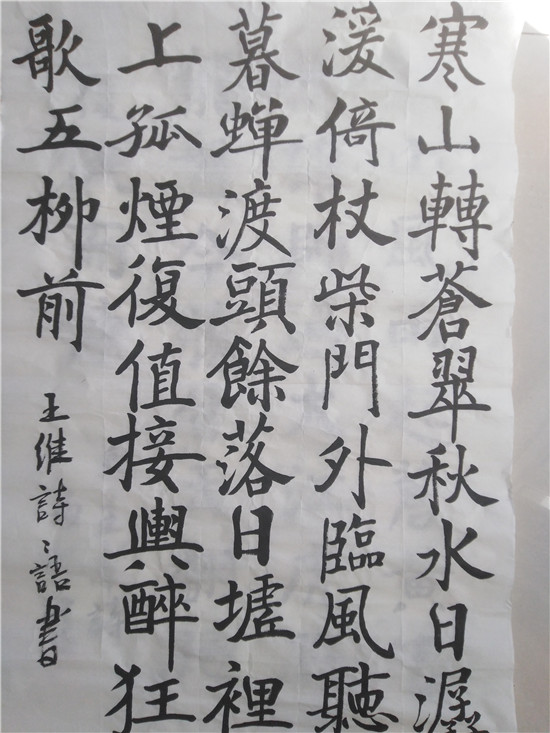 寒山轉蒼翠秋水日潺
湲倚杖柴門外臨風聽
暮蝉渡頭餘落日墟裡
上孤煙復值接輿醉狂
歌五柳前
王維詩〻語書